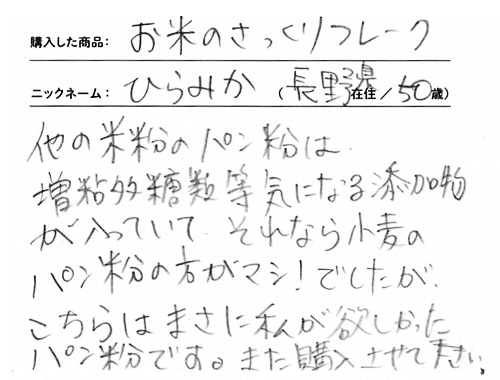 購入した商品: お米のさっくりフレーク
ニックネーム: ひらみか (長野県在住/50歳)
他の米粉のパン粉は
増粘多糖類等気になる添加物
が入っていて、それなら小麦の
パン粉の方がマシ!でしたが、
こちらはまさに私が欲しかった
パン粉です。また購入させて下さい。